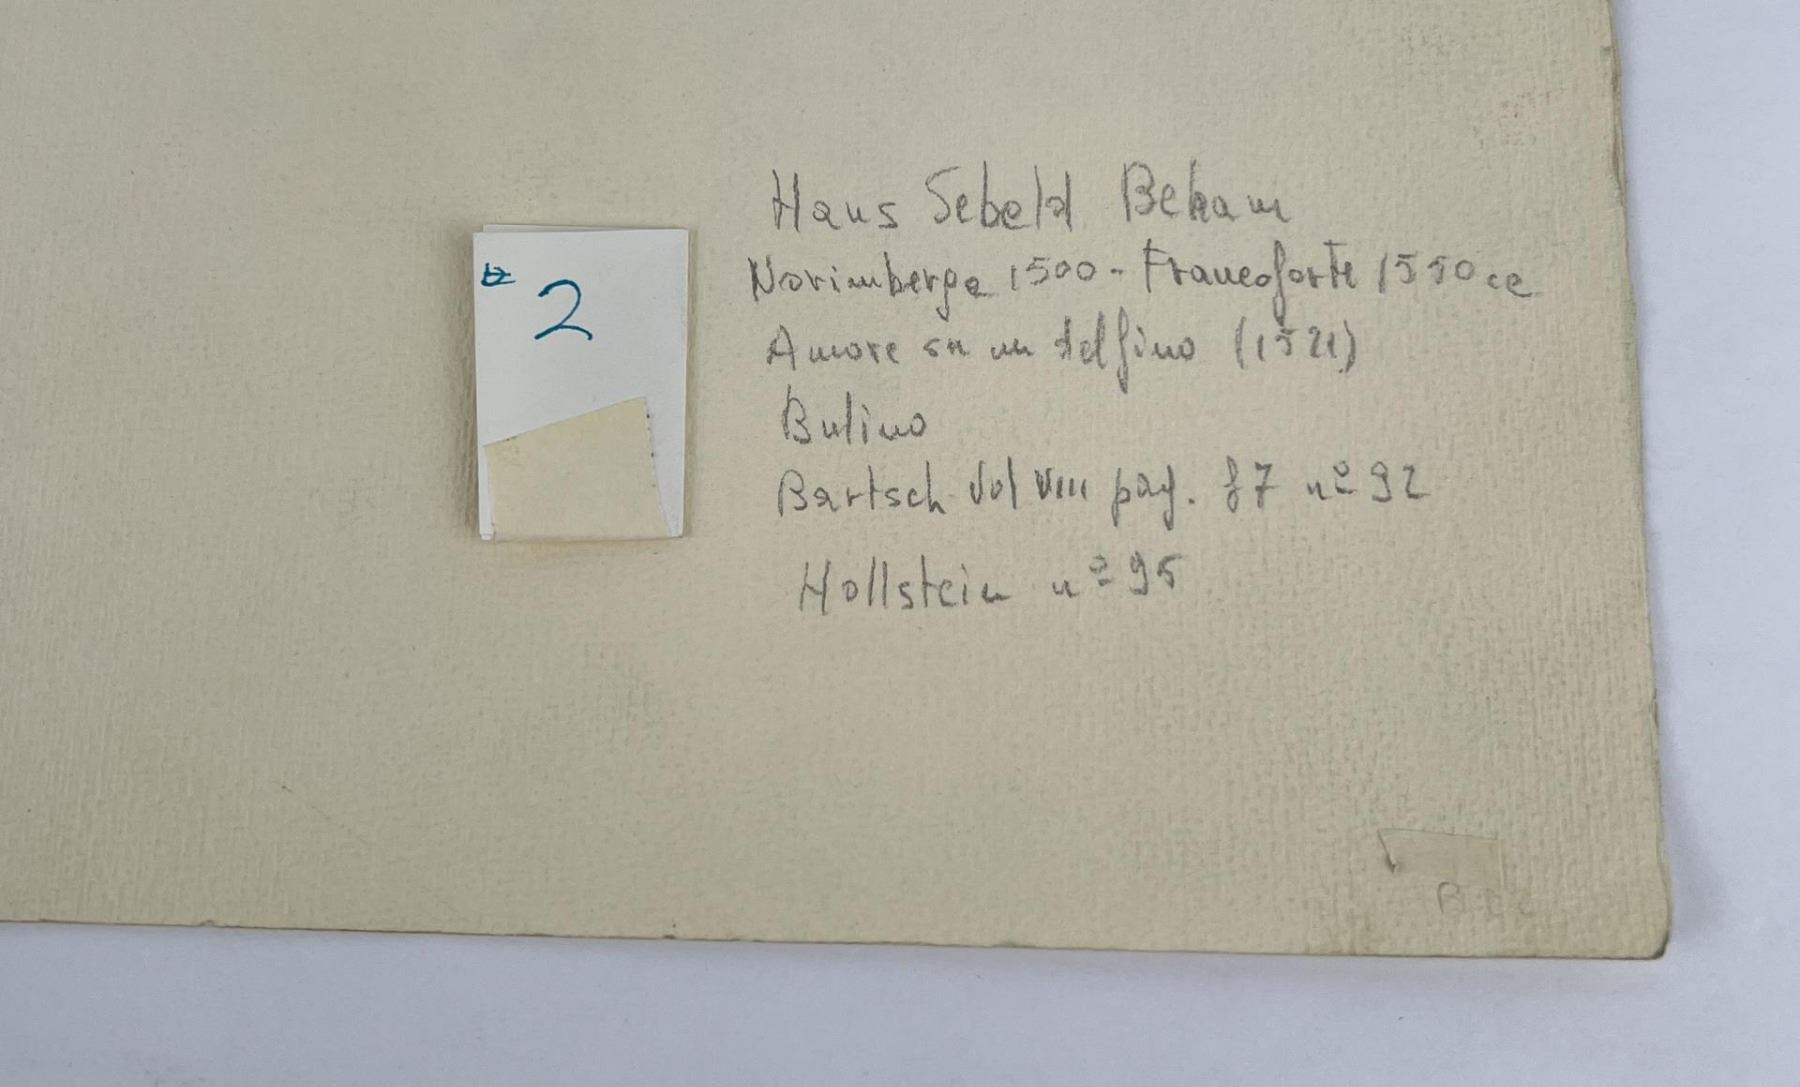 2
Hans Sebald Beham
Norimberga 1500 - Francoforte 1550 ca
Amore su un delfino (1521)
Bulino
Bartsch Vol VIII pag. 87 nº 92
Hollstein nº 95